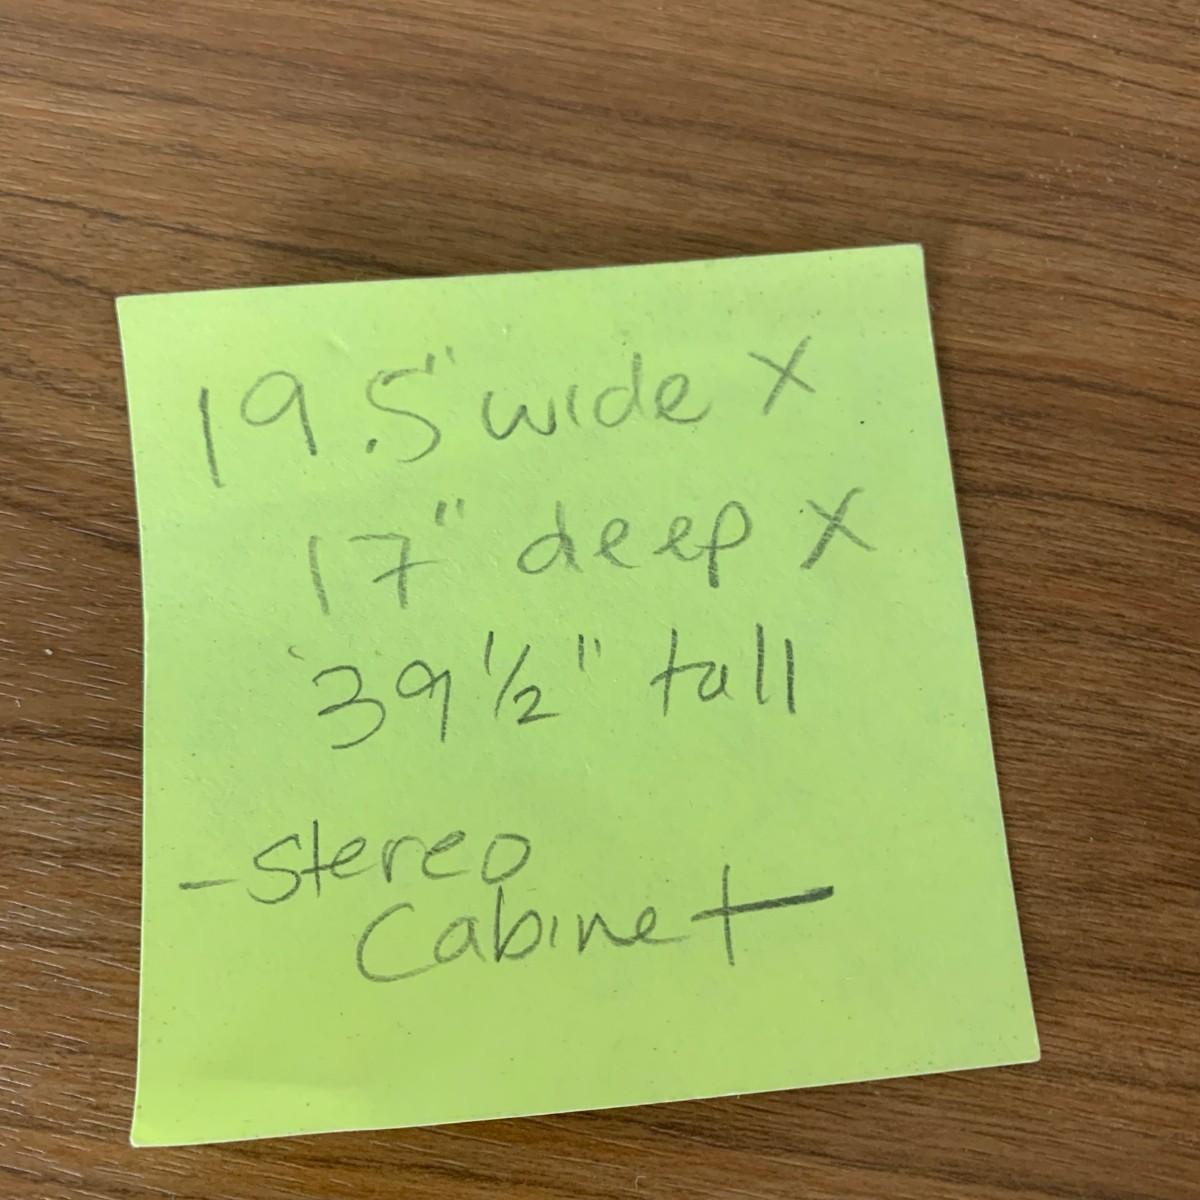 19.5" wide X
17" deep X
39 1/2" tall
- Stereo
Cabinet